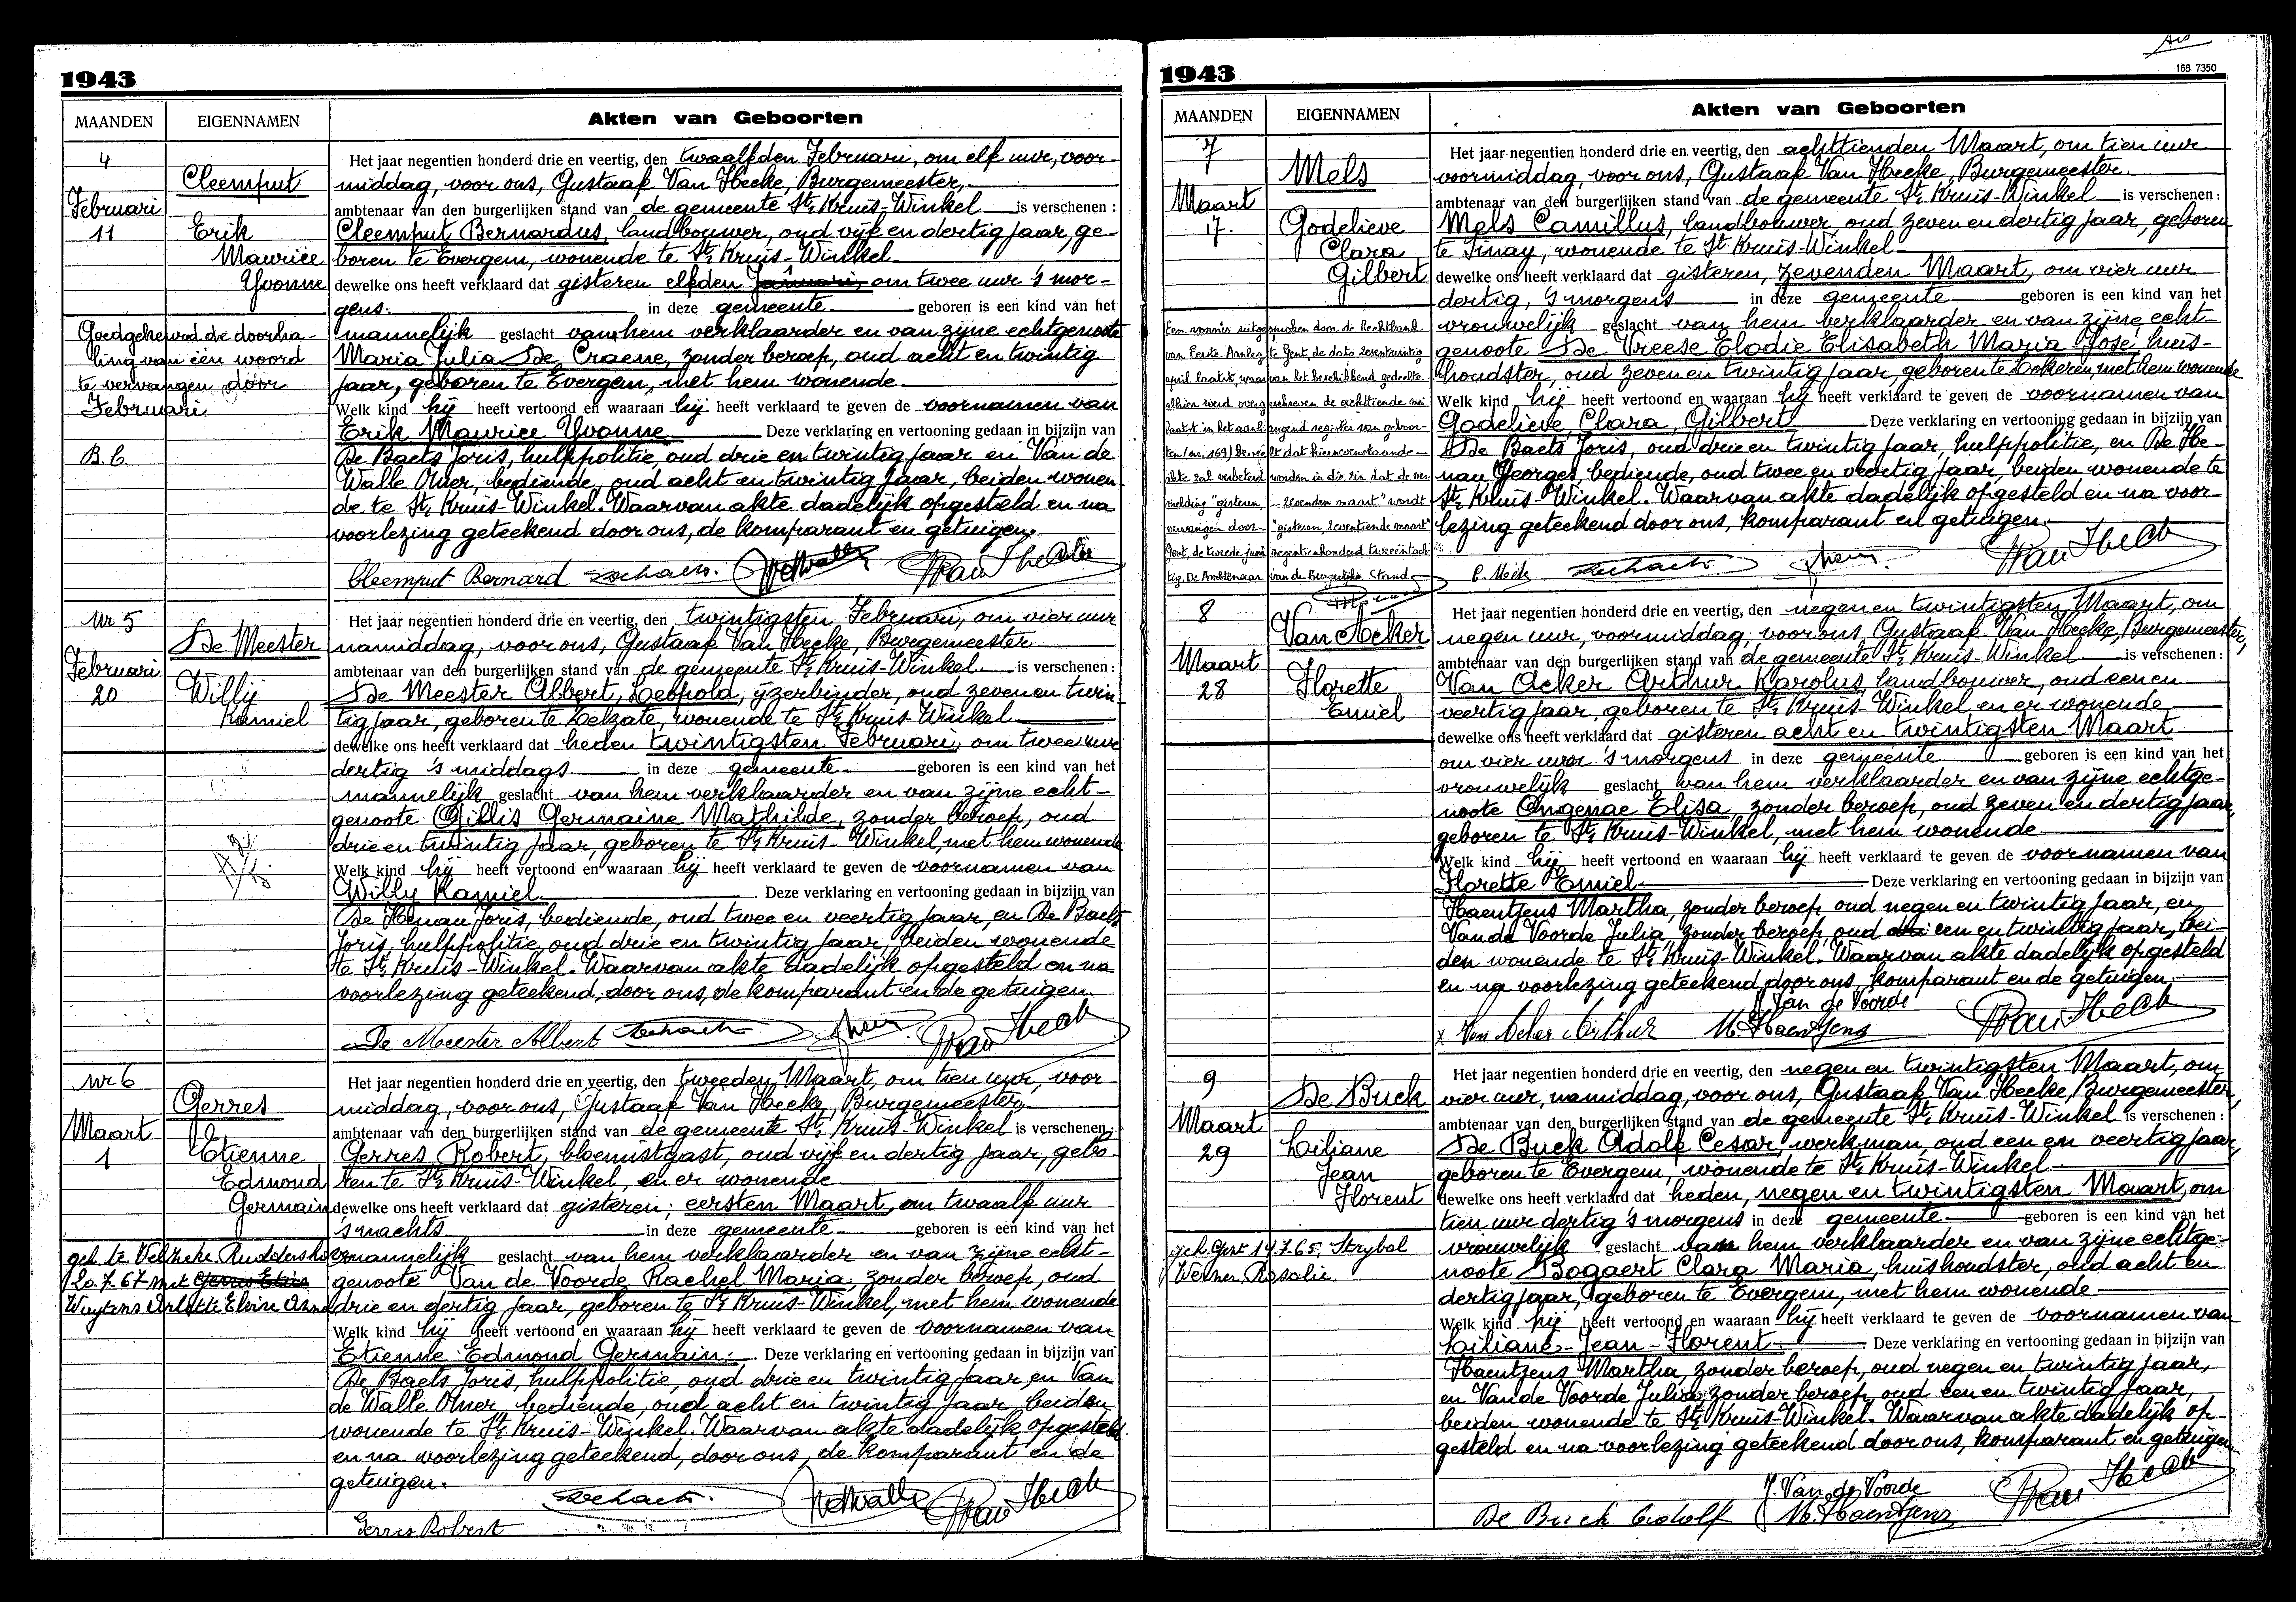 1943
MAANDEN EIGENNAMEN Akten van Geboorten
4
Cleemput
Februari
11 Erik
Maurice
Yvonne
Goedgekeurd de doorha-
ling van één woord
te vervangen door
Februari
B.C.
Het jaar negentien honderd drie en veertig, den twaalfden Februari, om elf uur, voor-
middag, voor ons, Gustaaf Van Hecke, Burgemeester,
ambtenaar van den burgerlijken stand van de gemeente St. Kruis-Winkel is verschenen:
Cleemput Bernardus, landbouwer, oud vijf en dertig jaar, ge-
boren te Evergem, wonende te St. Kruis-Winkel
dewelke ons heeft verklaard dat gisteren elfden Januari, om twee uur 's mor-
gens. in deze gemeente geboren is een kind van het
mannelijk geslacht van hem verklaarder en van zijne echtgenoote
Maria Julia De Craene, zonder beroep, oud acht en twintig
jaar, geboren te Evergem, met hem wonende
Welk kind hij heeft vertoond en waaraan hij heeft verklaard te geven de voornamen van
Erik Maurice Yvonne Deze verklaring en vertooning gedaan in bijzijn van
De Baets Joris, hulppolitie, oud drie en twintig jaar en Van de
Walle Omer, bediende, oud acht en twintig jaar, beiden wonen-
de te St. Kruis-Winkel. Waarvan akte dadelijk opgesteld en na
voorlezing geteekend door ons, de komparant en getuigen.
Cleemput Bernard
Nr 5
De Meester
Februari
20 Willy
Kamiel
Het jaar negentien honderd drie en veertig, den twintigsten Februari, om vier uur
namiddag, voor ons, Gustaaf Van Hecke, Burgemeester
ambtenaar van den burgerlijken stand van de gemeente St. Kruis-Winkel. is verschenen:
De Meester Albert, Leopold, ijzerbinder, oud zeven en twin-
tig jaar, geboren te Zelzate, wonende te St. Kruis Winkel
dewelke ons heeft verklaard dat heden twintigsten Februari, om twee uur
dertig 's middags in deze gemeente geboren is een kind van het
mannelijk geslacht van hem verklaarder en van zijne echt-
genoote Gillis Germaine Mathilde, zonder beroep, oud
drie en twintig jaar, geboren te St. Kruis-Winkel, met hem wonende
Welk kind hij heeft vertoond en waaraan hij heeft verklaard te geven de voornamen van
Willy Kamiel Deze verklaring en vertooning gedaan in bijzijn van
De Henau Joris, bediende, oud twee en veertig jaar, en De Baets
Joris, hulppolitie, oud drie en twintig jaar, beiden wonende
te St. Kruis-Winkel. Waarvan akte dadelijk opgesteld en na
voorlezing geteekend, door ons, de komparant en de getuigen.
De Meester Albert
Nr 6
Gerres
Maart
1 Etienne
Edmond
Germain
20.7.67 met
Het jaar negentien honderd drie en veertig, den tweeden Maart, om tien uur, voor-
middag, voor ons, Gustaaf Van Hecke, Burgemeester,
ambtenaar van den burgerlijken stand van de gemeente St. Kruis-Winkel is verschenen:
Gerres Robert, bloemistgast, oud vijf en dertig jaar, gebo-
ren te St. Kruis-Winkel, en er wonende
dewelke ons heeft verklaard dat gisteren, eersten Maart, om twaalf uur
's nachts in deze gemeente geboren is een kind van het
mannelijk geslacht van hem verklaarder en van zijne echt-
genoote Van de Voorde, Rachel Maria, zonder beroep, oud
drie en dertig jaar, geboren te St. Kruis-Winkel, met hem wonende
Welk kind hij heeft vertoond en waaraan hij heeft verklaard te geven de voornamen van
Etienne Edmond Germain. Deze verklaring en vertooning gedaan in bijzijn van
De Baets Joris, hulppolitie, oud drie en twintig jaar, en Van
de Walle Omer, bediende, oud acht en twintig jaar, beiden
wonende te St. Kruis-Winkel. Waarvan akte dadelijk opgesteld
en na voorlezing geteekend, door ons, de komparant en de
getuigen.
Gerres Robert
1943
168 7350
MAANDEN EIGENNAMEN Akten van Geboorten
7
Mels
Maart
17. Godelieve
Clara
Gilbert
Een vonnis uitgesproken door de Rechtbank
van Eerste Aanleg te Gent, de dato zevenentwintig
april laatst, waarvan het beschikkend gedeelte
alhier werd overgeschreven de achttiende mei
laatst in het aanhangend register van geboor-
ten (nr. 169) beveelt dat hierovenstaande
akte zal verbeterd worden in die zin dat de ver-
melding "gisteren, zevenden maart" wordt
vervangen door "gisteren, zeventiende maart"
Gent, de tweede juni negentienhonderd tweeëntach-
tig. De Ambtenaar van de Burgerlijke Stand
Het jaar negentien honderd drie en veertig, den achttienden Maart, om tien uur
voormiddag, voor ons, Gustaaf Van Hecke, Burgemeester
ambtenaar van den burgerlijken stand van de gemeente St. Kruis-Winkel is verschenen:
Mels Camillus, landbouwer, oud zeven en dertig jaar, geboren
te Sinay, wonende te St Kruis-Winkel
dewelke ons heeft verklaard dat gisteren, zevenden Maart, om vier uur
dertig, 's morgens in deze gemeente geboren is een kind van het
vrouwelijk geslacht van hem verklaarder en van zijne echt-
genoote De Vreese Elodie Elisabeth Maria José huis-
houdster, oud zeven en twintig jaar, geboren te Lokeren, met hem wonende
Welk kind hij heeft vertoond en waaraan hij heeft verklaard te geven de voornamen van
Godelieve, Clara, Gilbert Deze verklaring en vertooning gedaan in bijzijn van
De Baets Joris, oud drie en twintig jaar, hulppolitie, en De He-
nau Georges, bediende, oud twee en veertig jaar, beiden wonende te
St. Kruis-Winkel. Waarvan akte dadelijk opgesteld en na voor-
lezing geteekend door ons, komparant en getuigen.
8
Van Acker
Maart
28 Florette
Emiel
Het jaar negentien honderd drie en veertig, den negen en twintigsten Maart, om
negen uur, voormiddag, voor ons, Gustaaf Van Hecke, Burgemeester,
ambtenaar van den burgerlijken stand van de gemeente St. Kruis-Winkel is verschenen:
Van Acker Arthur Karolus, landbouwer, oud een en
veertig jaar, geboren te St. Kruis-Winkel en er wonende
dewelke ons heeft verklaard dat gisteren acht en twintigsten Maart
om vier uur 's morgens in deze gemeente geboren is een kind van het
vrouwelijk geslacht van hem verklaarder en van zijne echtge-
noote Ongenae Elisa, zonder beroep, oud zeven en dertig jaar,
geboren te St. Kruis-Winkel, met hem wonende
Welk kind hij heeft vertoond en waaraan hij heeft verklaard te geven de voornamen van
Florette Emiel Deze verklaring en vertooning gedaan in bijzijn van
Haentjens Martha, zonder beroep, oud negen en twintig jaar, en
Van de Voorde Julia, zonder beroep, oud een en twintig jaar, bei-
den wonende te St. Kruis-Winkel. Waarvan akte dadelijk opgesteld
en na voorlezing geteekend door ons, komparant en de getuigen.
Van de Voorde
x Van Acker Arthur M. Haentjens
9
De Buck
Maart
29 Liliane
Jean
Florent
geh. Gent 19.7.65, Strybol
Werner, Rosalie
Het jaar negentien honderd drie en veertig, den negen en twintigsten Maart, om
vier uur, namiddag, voor ons, Gustaaf Van Hecke, Burgemeester,
ambtenaar van den burgerlijken stand van de gemeente St. Kruis-Winkel is verschenen:
De Buck Adolf Cesar, werkman, oud een en veertig jaar,
geboren te Evergem, wonende te St. Kruis-Winkel
dewelke ons heeft verklaard dat heden, negen en twintigsten Maart, om
tien uur dertig 's morgens in deze gemeente geboren is een kind van het
vrouwelijk geslacht van hem verklaarder en van zijne echtge-
noote Bogaert Clara Maria, huishoudster, oud acht en
dertig jaar, geboren te Evergem, met hem wonende
Welk kind hij heeft vertoond en waaraan hij heeft verklaard te geven de voornamen van
Liliane-Jean-Florent. Deze verklaring en vertooning gedaan in bijzijn van
Haentjens Martha, zonder beroep, oud negen en twintig jaar,
en Van de Voorde Julia, zonder beroep, oud een en twintig jaar,
beiden wonende te St. Kruis-Winkel. Waarvan akte dadelijk op-
gesteld en na voorlezing geteekend door ons, komparant en getuigen
J. Van de Voorde
De Buck Adolf M. Haentjens